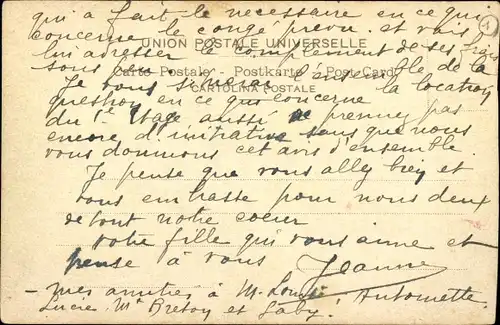 qui a fait le nécessaire en ce qui
concerne le congé prévu. et vais
lui adresser le complément de ses frais
sous peu.
UNION POSTALE UNIVERSELLE
Carte Postale - Postkarte - Post Card
CARTOLINA POSTALE
Je vous l'ensemble de la
question en ce qui concerne la location
du 1er Etage aussi ne prenez pas
encore d'initiative sans que nous
vous donnions cet avis d'ensemble.
Je pense que vous allez bien et
vous embrasse pour nous deux
de tout notre coeur
votre fille qui vous aime et
pense à vous Jeanne
- mes amitiés à M. Louis, Antoinette
Lucie. Me Breton et Gaby.